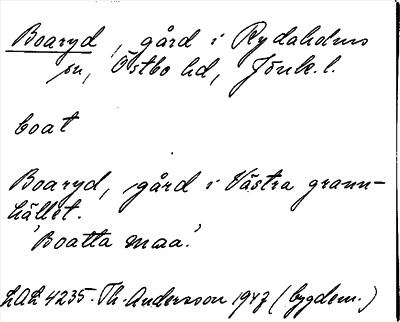 Boaryd, gård i Rydaholms
sn, Östbo hd, Jönk.l.
boat
Boaryd, gård i Västra grann-
hållet.
'Boatta maa.'
LAL 4235. Th. Andersson 1947 (bygdem.)